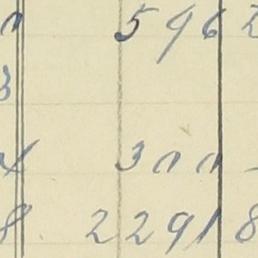 5962
3
4 300 -
8 22918